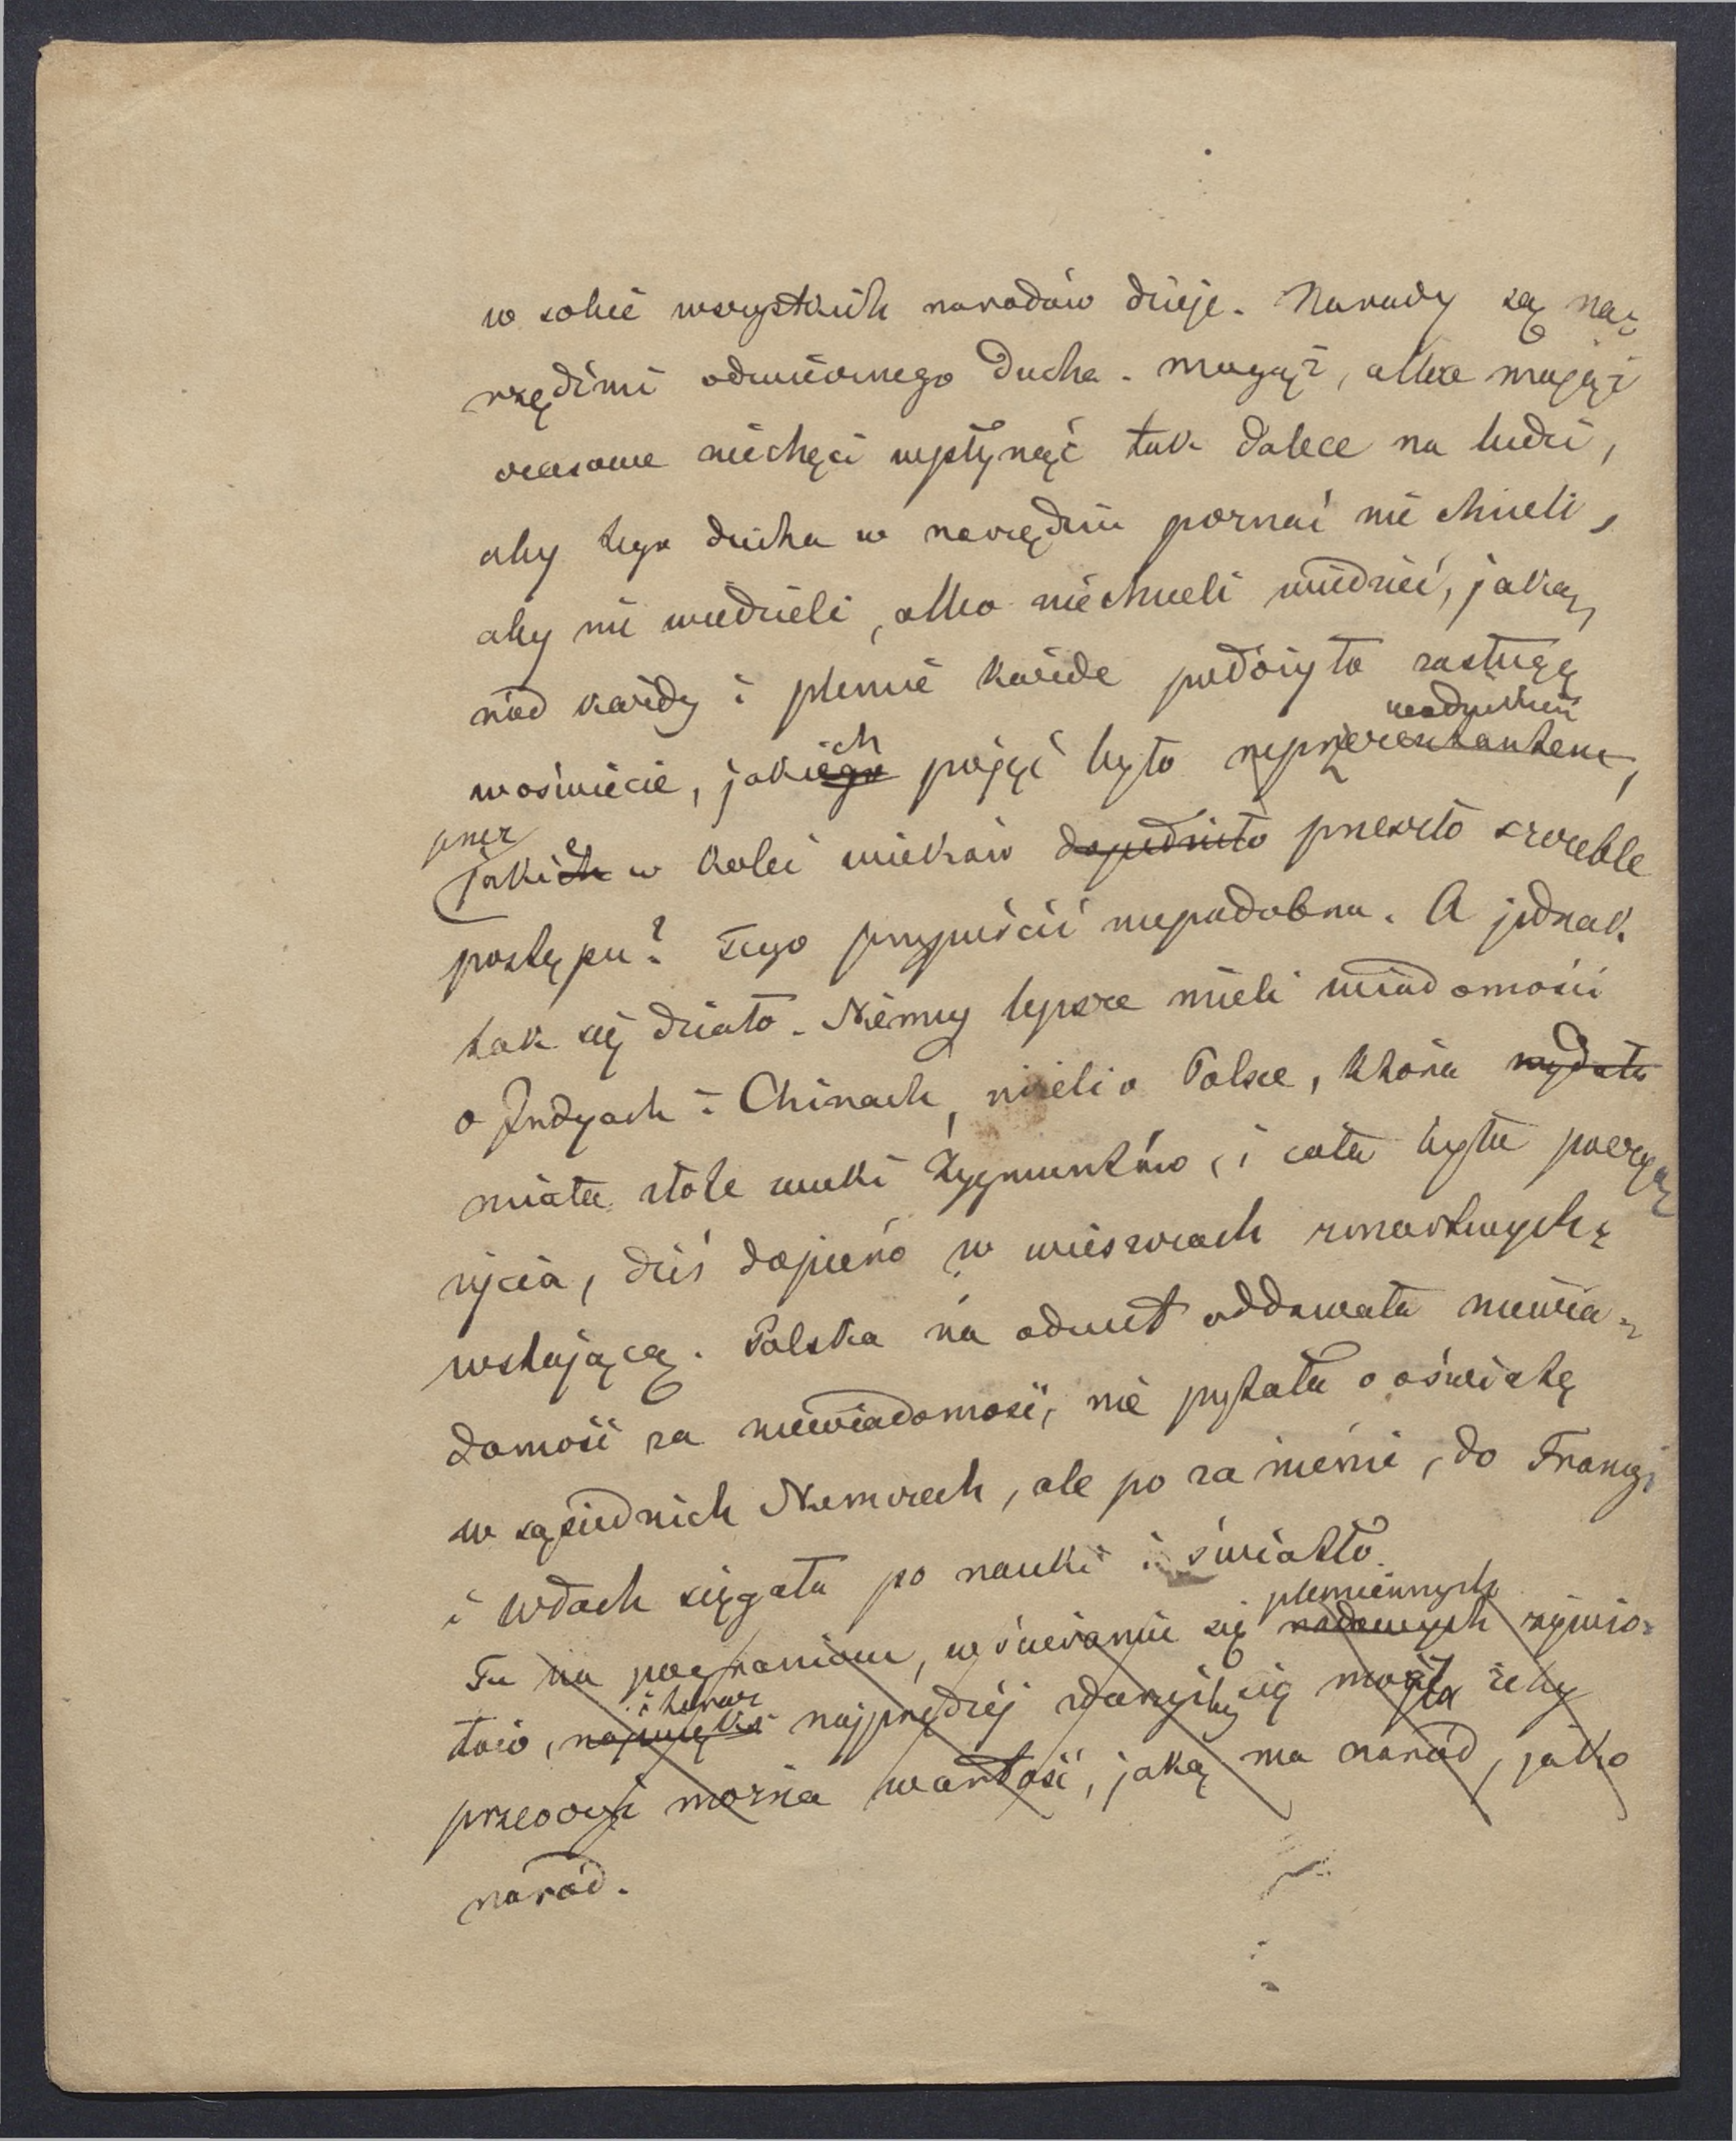 w sobie wszystkich narodów dzieje. Narody są na-
rzędźmi odwiecznego Ducha. Mogąż, albo mająż
czasowe niechęci wpłynąć tak dalece na ludzi,
aby tego ducha w narzędziu poznać nie chcieli,
aby nie wiedzieli, albo niechcieli wiedzieć, jaką
ród każdy i plemie każde położyło zasługę
nadzieleń
ch
woświecie, jakiego pojęć było reprezentantem,
przez
e
jakich w kolei wieków dopełniło przeszło szczeble
postępu? Tego przypuścić niepodobna. A jednak
tak się działo. Niemcy lepsze mieli wiadomości
o Indyach i Chinach, niżeli o Polsce, która wydała
miała złote wieki Zygmuntów, i cała była poezyą
życia, dziś dopiero w wieszczach zmartwychź
wstającą. Polska na odwet oddawała niewia-
domość za niewiadomość, nie pytała o oświatę
w sąsiednich Niemczech, ale po za niemi, do Francyi
i Włoch sięgała po nauki i światło.
plemiennych
Tu na pograniczu, w ścieraniu się rodowych żywio-
i teraz
łów, najprędzej zdarzyćby się mogło żeby
przeoczyć można wartość, jaką ma naród, jako
naród.